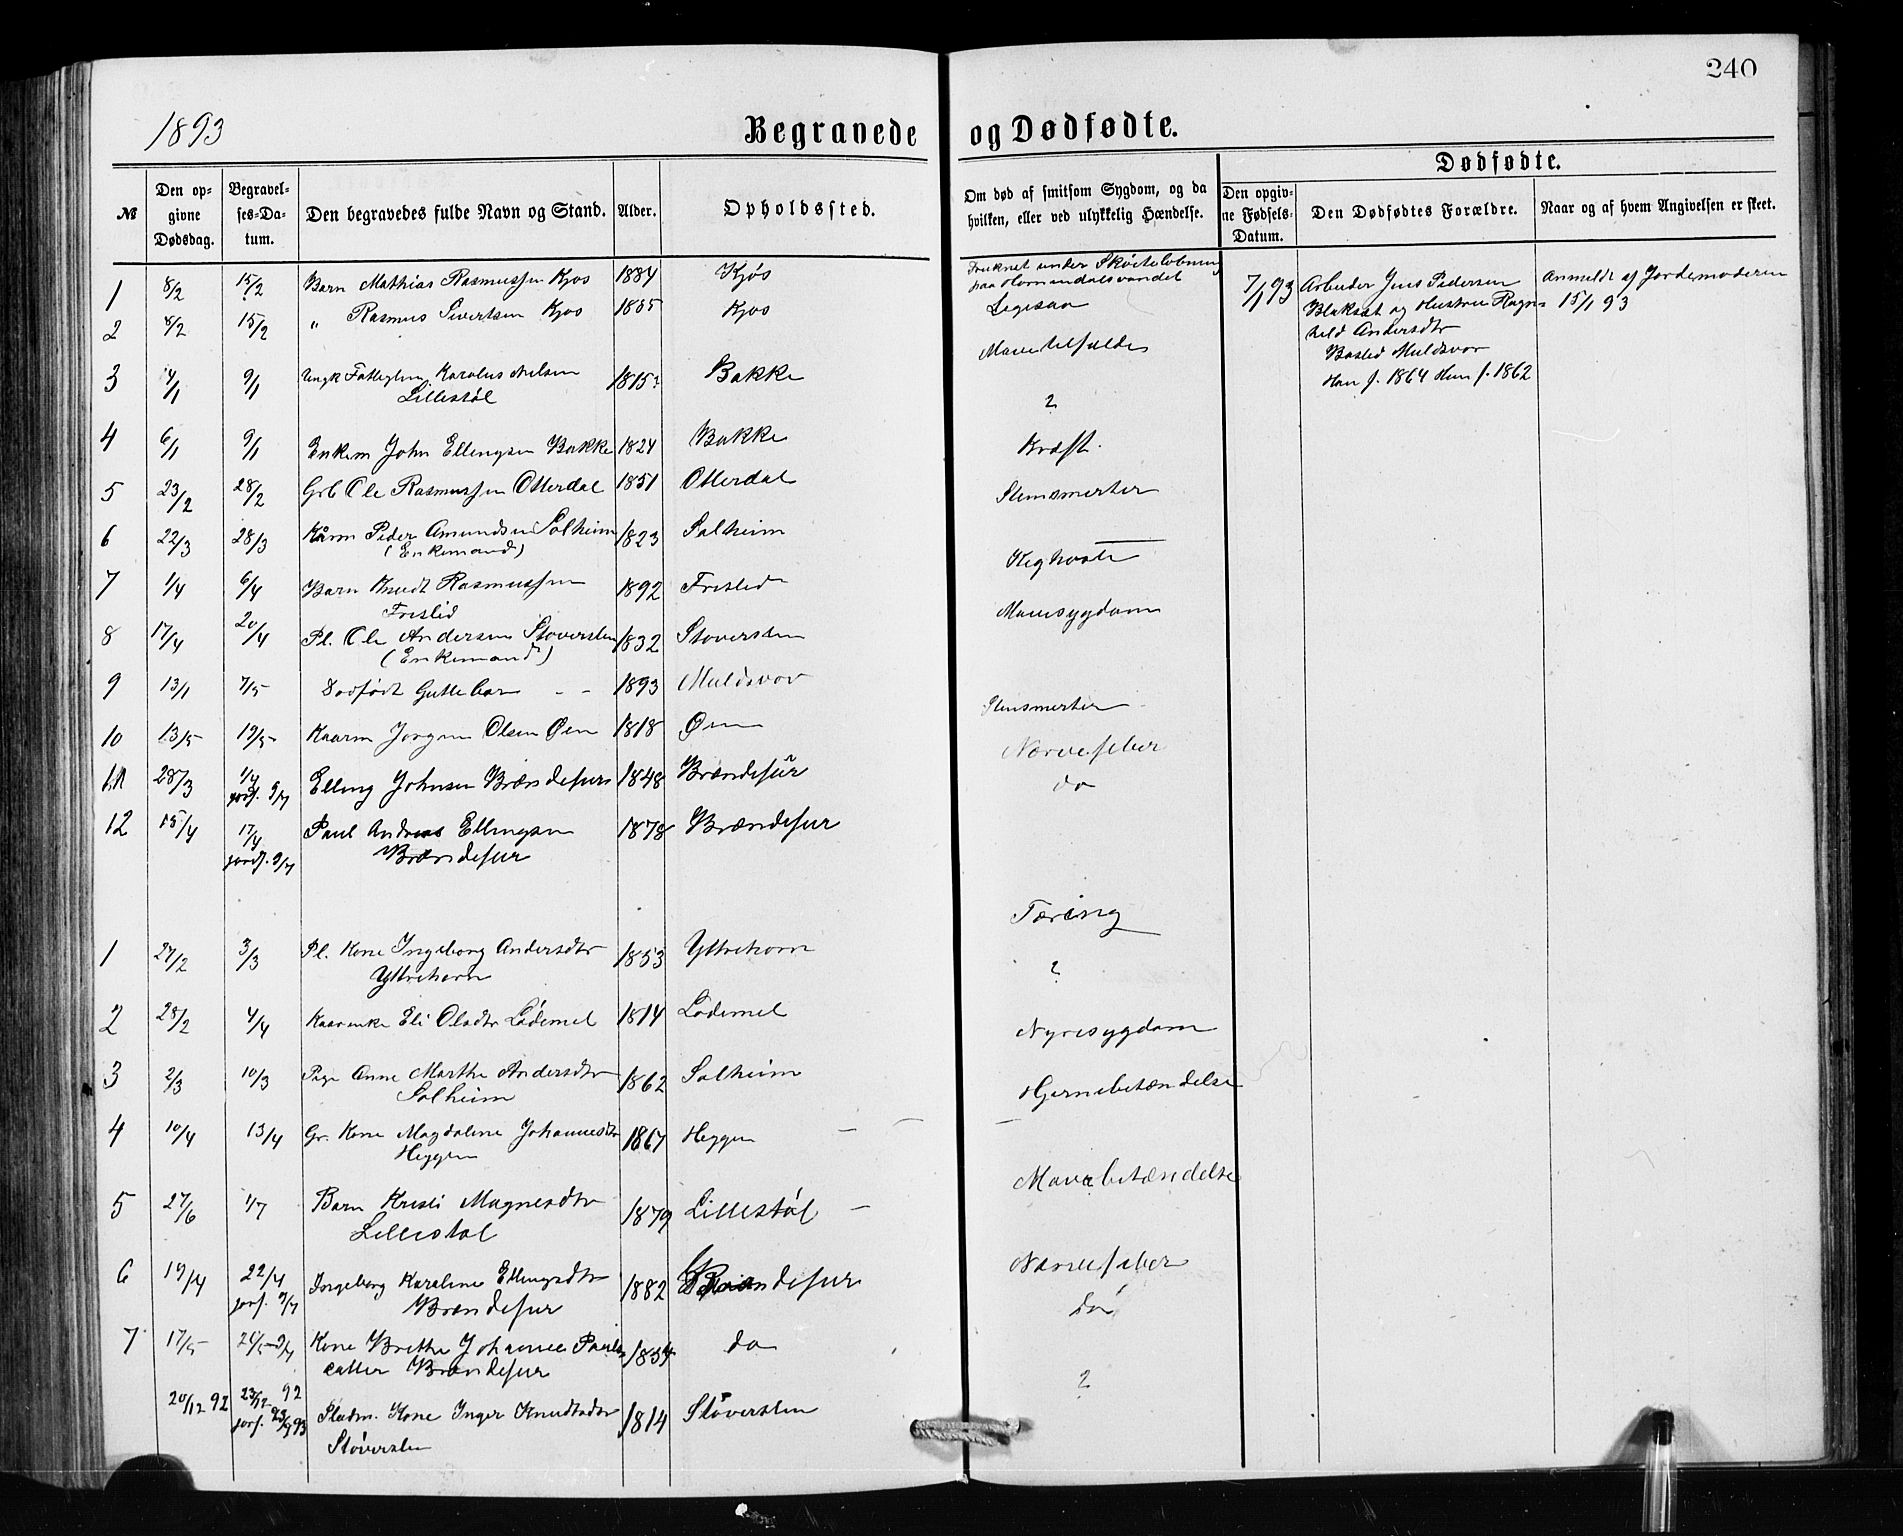 240
1893
Begravede og Dødfødte.
Dødfødte.
№
Den opgivne Dødsdag.
Begravelses-Datum.
Den begravedes fulde Navn og Stand.
Alder.
Opholdssted.
Om død af smitsom Sygdom, og da hvilken, eller ved ulykkelig Hændelse.
Den opgivne Fødsels-Datum.
Den Dødfødtes Forældre.
Naar og af hvem Angivelsen er skeet.
1 8/2 15/2 Barn Mathias Rasmussen Kjos 1884 Kjøs
Druknet under Skøiteløbning
paa Hornindalsvandet
7/1 93 Arbeider Jens Pedersen
Blaksæt og Hustru Ragn-
hild Andersdtr
Bosted Muldsvor
Han f. 1864 Hun f. 1862
Anmeldt af Jordemoderen
15/1 93
2 8/2 15/2 " Rasmus Sivertsen Kjos 1885 Kjos
Ligesaa
3 4/1 9/1 Ungk Fattiglem Karolus Nilsen
Lillestøl 1815? Bakke
Mavetilfælde
4 6/1 9/1 Enkem John Ellingsen Bakke 1824 Bakke
?
5 23/2 28/2 Grb Ole Rasmussen Otterdal 1851 Otterdal
Kræft.
6 22/3 28/3 Kårm Peder Amundsen Solheim
(Enkemand) 1823 Solheim
Stensmerter
7 1/4 6/4 Barn Knudt Rasmussen
Frislid 1892 Frislid
Kighoste
8 17/4 20/4 Pl. Ole Andersen Støverslen
(Enkemand) 1832 Stoverslen
Mavesygdom
9 13/1 7/5 Dødfødt Guttebarn - - 1893 Muldsvor
10 13/5 19/5 Kaarm Jørgen Olsen Øen 1818 Øen
Stensmerter
11 28/3 1/4
jordf. 9/7 Elling Johnsen Brændefur 1848 Brændefur
Nervefeber
12 15/4 17/4
jordf. 9/7 Paul Andreas Ellingsen
Brændefur 1878 Brændefur
do
1 27/2 3/3 Pl. Kone Ingeborg Andersdtr
Yttrehorn 1853 Yttrehorn
Tæring
2 28/2 4/4 Kaarenke Eli Olsdtr Lødemel 1814 Lødemel
?
3 2/3 10/3 Pige Anne Marthe Andersdtr
Solheim 1862 Solheim
Nyresygdom
4 10/4 13/4 Gr. Kone Magdalene Johannesdtr
Heggen 1867 Heggen
Hjernebetændelse
5 27/6 1/7 Barn Kristi Magnesdtr
Lillestøl 1879 Lillestøl
Mavebetændelse
6 19/4 22/4
jorf. 9/7 Ingeborg Karoline Ellingsdtr
Brændefur 1882 Brændefur
Nervefeber
7 17/5 21/5 9/7 Kone Brithe Johanne Pauls-
datter Brændefur 1854 do
do
20/12 92 23/12 92
jorf. 93 Pladsm. Kone Inger Knudtsdtr
Støverslen 1814 Støverslen
?